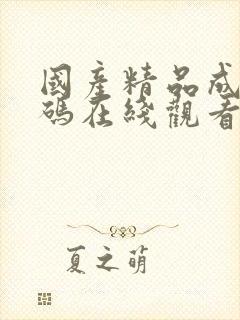 國產精品成
碼在綫觀看
夏之萌